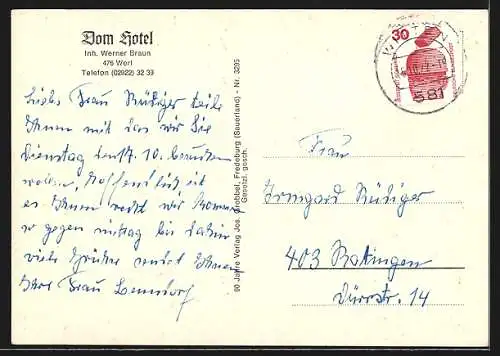 Dom Hotel
Inh. Werner Braun
476 Werl
Telefon (02922) 32 39
Liebe Frau Rüdiger teile
Ihnen mit das wir Sie
Dienstag den 17. 10. besuchen
wollen, Hoffentlich ist
es Ihnen recht wir kommen
so gegen mittag bis dahin
viele Grüße sendet Ihnen
Ihre Frau
90 Jahre Verlag Jos. Grobbel, Fredeburg (Sauerland) - Nr. 3295
Gesetzl. gesch.
30
581
Frau
Irmgard Rüdiger
403 Ratingen
Dürrstr. 14